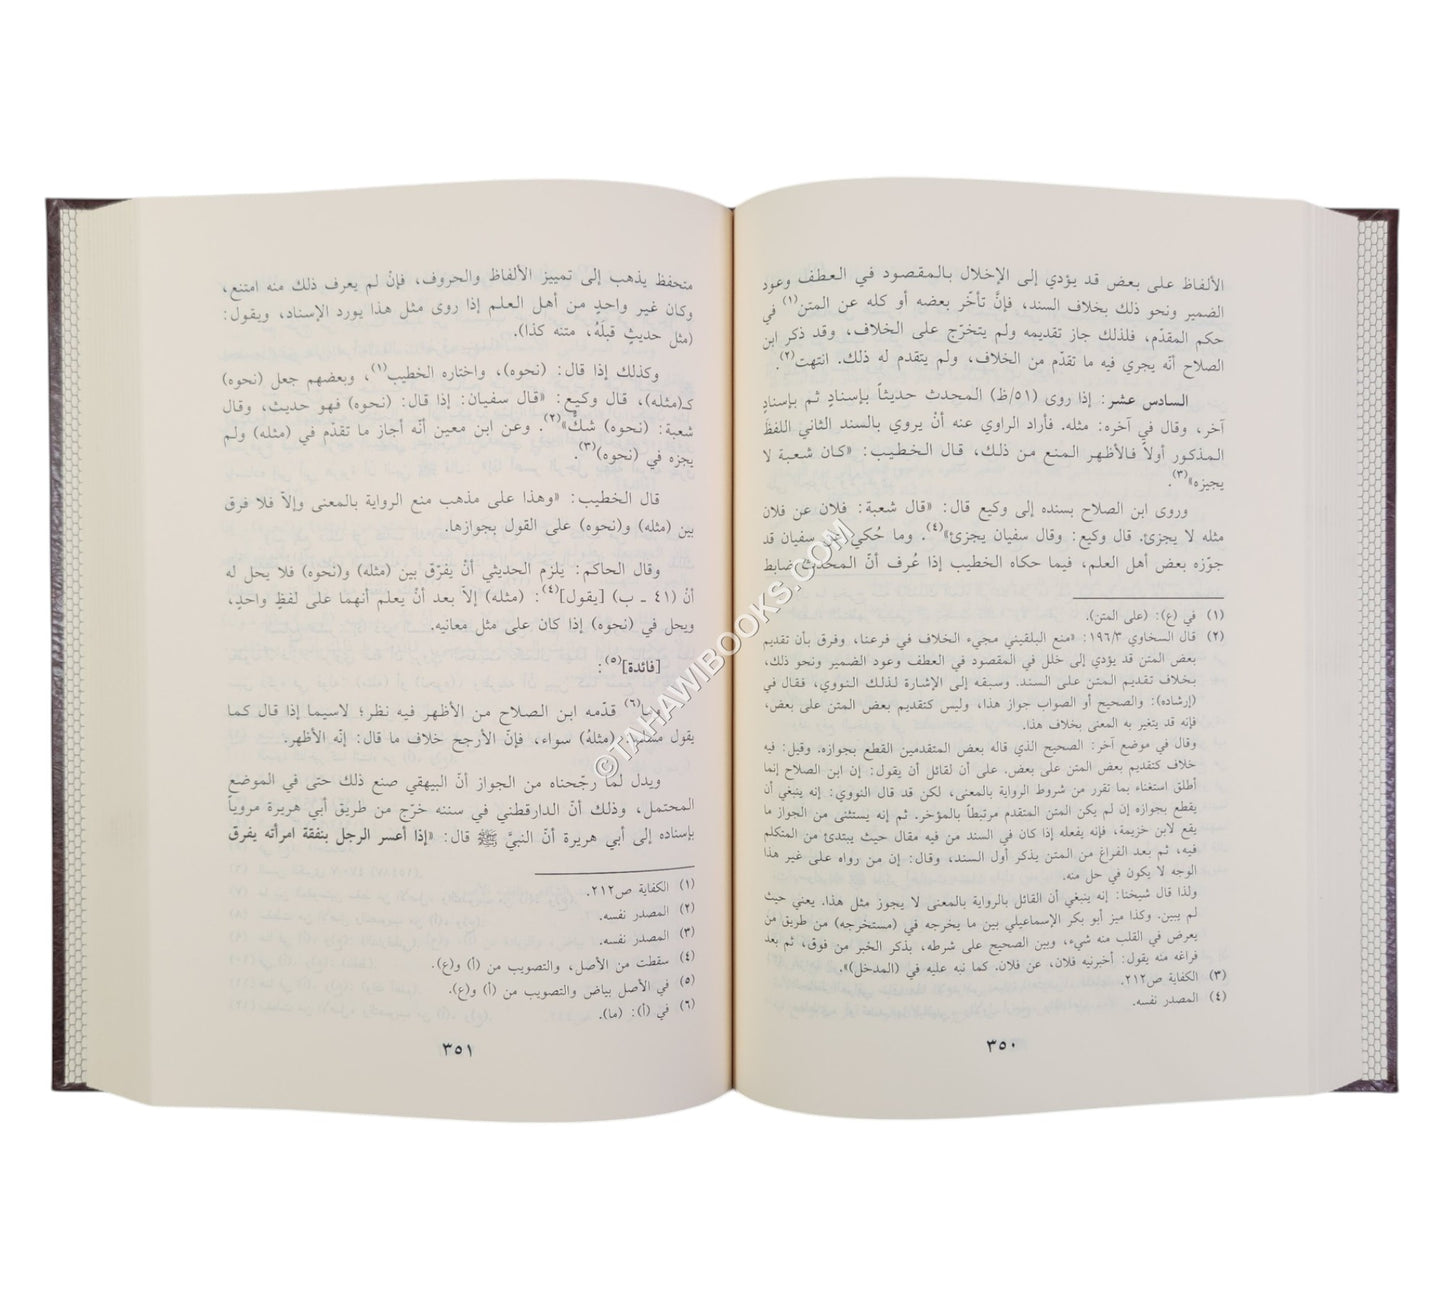 الألفاظ على بعض قد يؤدي إلى الإخلال بالمقصود في العطف وعود
الضمير ونحو ذلك بخلاف السند، فإنَّ تأخّر بعضه أو كله عن المتن(١) في
حكم المقدّم، فلذلك جاز تقديمه ولم يتخرّج على الخلاف، وقد ذكر ابن
الصلاح أنّه يجري فيه ما تقدّم من الخلاف، ولم يتقدم له ذلك. انتهت(٢).
السادس عشر: إذا روى (٥١/ظ) المحدث حديثاً بإسنادٍ ثم بإسنادٍ
آخر، وقال في آخره: مثله. فأراد الراوي عنه أنْ يروي بالسند الثاني اللفظَ
المذكور أولاً فالأظهر المنع من ذلك، قال الخطيب: «كان شعبة لا
يجيزه»(٣).
وروى ابن الصلاح بسنده إلى وكيع قال: «قال شعبة: فلان عن فلان
مثله لا يجزئ. قال وكيع: وقال سفيان يجزئ»(٤). وما حُكي عن سفيان قد
جوّزه بعض أهل العلم، فيما حكاه الخطيب إذا عُرف أنّ المحدث ضابط
(١) في (ع): (على المتن).
(٢) قال السخاوي ١٩٦/٣: «منع البلقيني مجيء الخلاف في فرعنا، وفرق بأن تقديم
بعض المتن قد يؤدي إلى خلل في المقصود في العطف وعود الضمير ونحو ذلك،
بخلاف تقديم المتن على السند. وسبقه إلى الإشارة لذلك النووي، فقال في
(إرشاده): والصحيح أو الصواب جواز هذا، وليس كتقديم بعض المتن على بعض،
فإنه قد يتغير به المعنى بخلاف هذا.
وقال في موضع آخر: الصحيح الذي قاله بعض المتقدمين القطع بجوازه. وقيل: فيه
خلاف كتقديم بعض المتن على بعض. على أن لقائل أن يقول: إن ابن الصلاح إنما
أطلق استغناء بما تقرر من شروط الرواية بالمعنى، لكن قد قال النووي: إنه ينبغي أن
يقطع بجوازه إن لم يكن المتن المتقدم مرتبطاً بالمؤخر. ثم إنه يستثنى من الجواز ما
يقع لابن خزيمة، فإنه يفعله إذا كان في السند من فيه مقال حيث يبتدئ من المتكلم
فيه، ثم بعد الفراغ من المتن يذكر أول السند، وقال: إن من رواه على غير هذا
الوجه لا يكون في حل منه.
ولذا قال شيخنا: إنه ينبغي أن القائل بالرواية بالمعنى لا يجوز مثل هذا. يعني حيث
لم يبين. وكذا ميز أبو بكر الإسماعيلي بين ما يخرجه في (مستخرجه) من طريق من
يعرض في القلب منه شيء، وبين الصحيح على شرطه، بذكر الخبر من فوق، ثم بعد
فراغه منه يقول: أخبرنيه فلان، عن فلان. كما نبه عليه في (المدخل)».
(٣) الكفاية ص٢١٢.
(٤) المصدر نفسه.
٣٥٠
متحفظ يذهب إلى تمييز الألفاظ والحروف، فإنْ لم يعرف ذلك منه امتنع،
وكان غير واحدٍ من أهل العلم إذا روى مثل هذا يورد الإسناد، ويقول:
(مثل حديثٍ قبلَهُ، متنه كذا).
وكذلك إذا قال: (نحوه)، واختاره الخطيب(١)، وبعضهم جعل (نحوه)
كـ(مثله)، قال وكيع: «قال سفيان: إذا قال: (نحوه) فهو حديث، وقال
شعبة: (نحوه) شكٌّ»(٢). وعن ابن معين أنّه أجاز ما تقدّم في (مثله) ولم
يجزه في (نحوه)(٣).
قال الخطيب: «وهذا على مذهب منع الرواية بالمعنى وإلاّ فلا فرق
بين (مثله) و(نحوه) على القول بجوازها.
وقال الحاكم: يلزم الحديثي أنْ يفرّق بين (مثله) و(نحوه) فلا يحل له
أنْ (٤١ ـ ب) [يقول](٤): (مثله) إلاّ بعد أنْ يعلم أنهما على لفظٍ واحدٍ،
ويحل في (نحوه) إذا كان على مثل معانيه.
[فائدة](٥):
وما(٦) قدّمه ابن الصلاح من الأظهر فيه نظر؛ لاسيما إذا قال كما
يقول مسلم: (مثلهُ) سواء، فإنّ الأرجح خلاف ما قال: إنّه الأظهر.
ويدل لما رجّحناه من الجواز أنّ البيهقي صنع ذلك حتى في الموضع
المحتمل، وذلك أنّ الدارقطني في سننه خرّج من طريق أبي هريرة مروياً
بإسناده إلى أبي هريرة أنّ النبيَّ ﷺ قال: «إذا أعسر الرجل بنفقة امرأته يفرق
(١) الكفاية ص٢١٢.
(٢) المصدر نفسه.
(٣) المصدر نفسه.
(٤) سقطت من الأصل، والتصويب من (أ) و(ع).
(٥) في الأصل بياض والتصويب من (أ) و(ع).
(٦) في (أ): (ما).
٣٥١
©TAHAWIBOOKS.COM